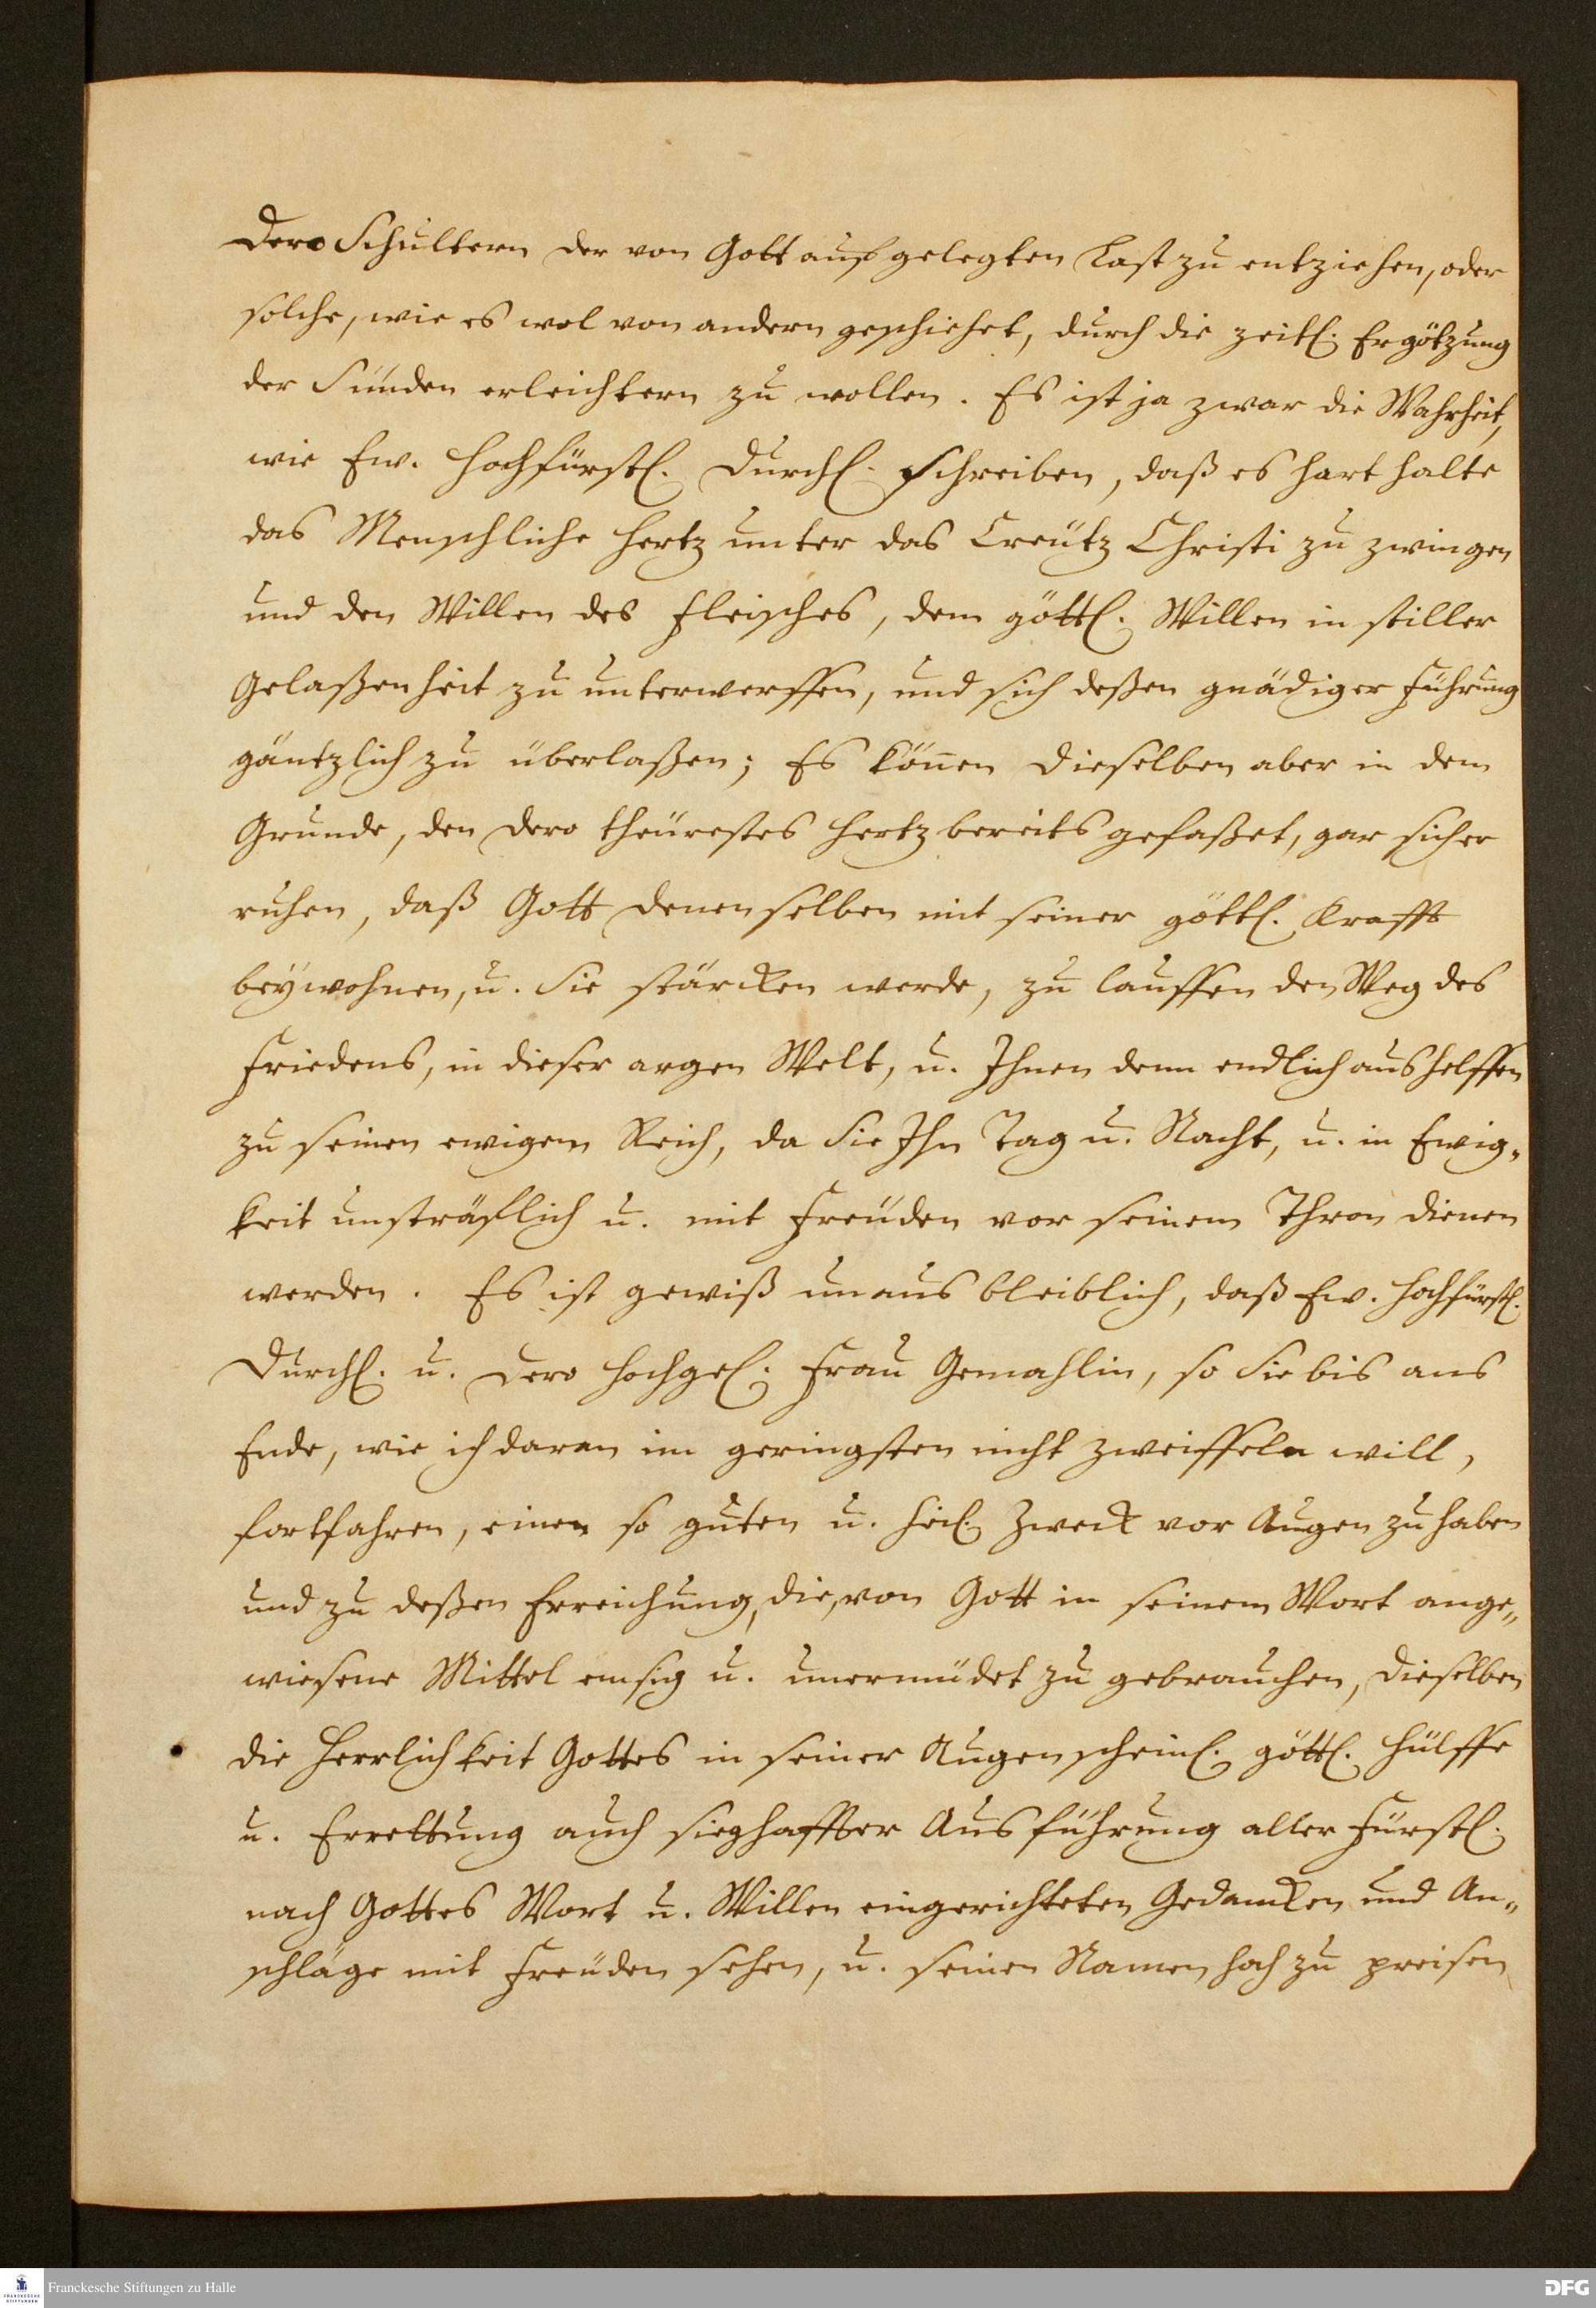 Dero Schultern der von Gott aufgelegten Last zu entziehen, oder
solche, wie es wol von andern geschiehet, durch die zeitl. Ergötzung
der Sünden erleichtern zu wollen. Es ist ja zwar die Wahrheit,
wie Ew. Hochfürstl. Durchl. schreiben, daß es hart halte
das Menschliche Hertz unter das Creütz Christi zu zwingen
und den Willen des Fleisches, dem göttl. Willen in stiller
Gelaßenheit zu unterwerffen, und sich deßen gnädiger Führung
gäntzlich zu überlaßen; Es kön̄en Dieselben aber in dem
Grunde, den Dero theürestes Hertz bereits gefaßet, gar sicher
ruhen, daß Gott Denenselben mit seiner göttl. Krafft
beÿwohnen, u. Sie stärcken werde, zu lauffen den Weg des
Friedens, in dieser argen Welt, u. Ihnen denn endlich aushelffen
zu seinen ewigem Reich, da Sie Ihn Tag u. Nacht, u. in Ewig„
keit unsträflich u. mit Freüden vor seinem Thron dienen
werden. Es ist gewiß unausbleiblich, daß Ew. Hochfürstl.
Durchl. u. Dero Hochgel. Frau Gemahlin, so Sie bis ans
Ende, wie ich daran im geringsten nicht zweiffeln will,
fortfahren, einen so guten u. heil. Zweck vor Augen zu haben
und zu deßen Erreichung, die, von Gott in seinem Wort ange„
wiesene Mittel emsig u. unermüdet zu gebrauchen, Dieselben
die Herrlichkeit Gottes in seiner Augenscheinl. göttl. Hülffe
u. Errettung auch sieghaffter Ausführung aller Fürstl.
nach Gottes Wort u. Willen eingerichteten Gedancken und An„
schläge mit Freüden sehen, u. seinen Namen hoch zu preisen
Franckesche Stiftungen zu Halle
DFG